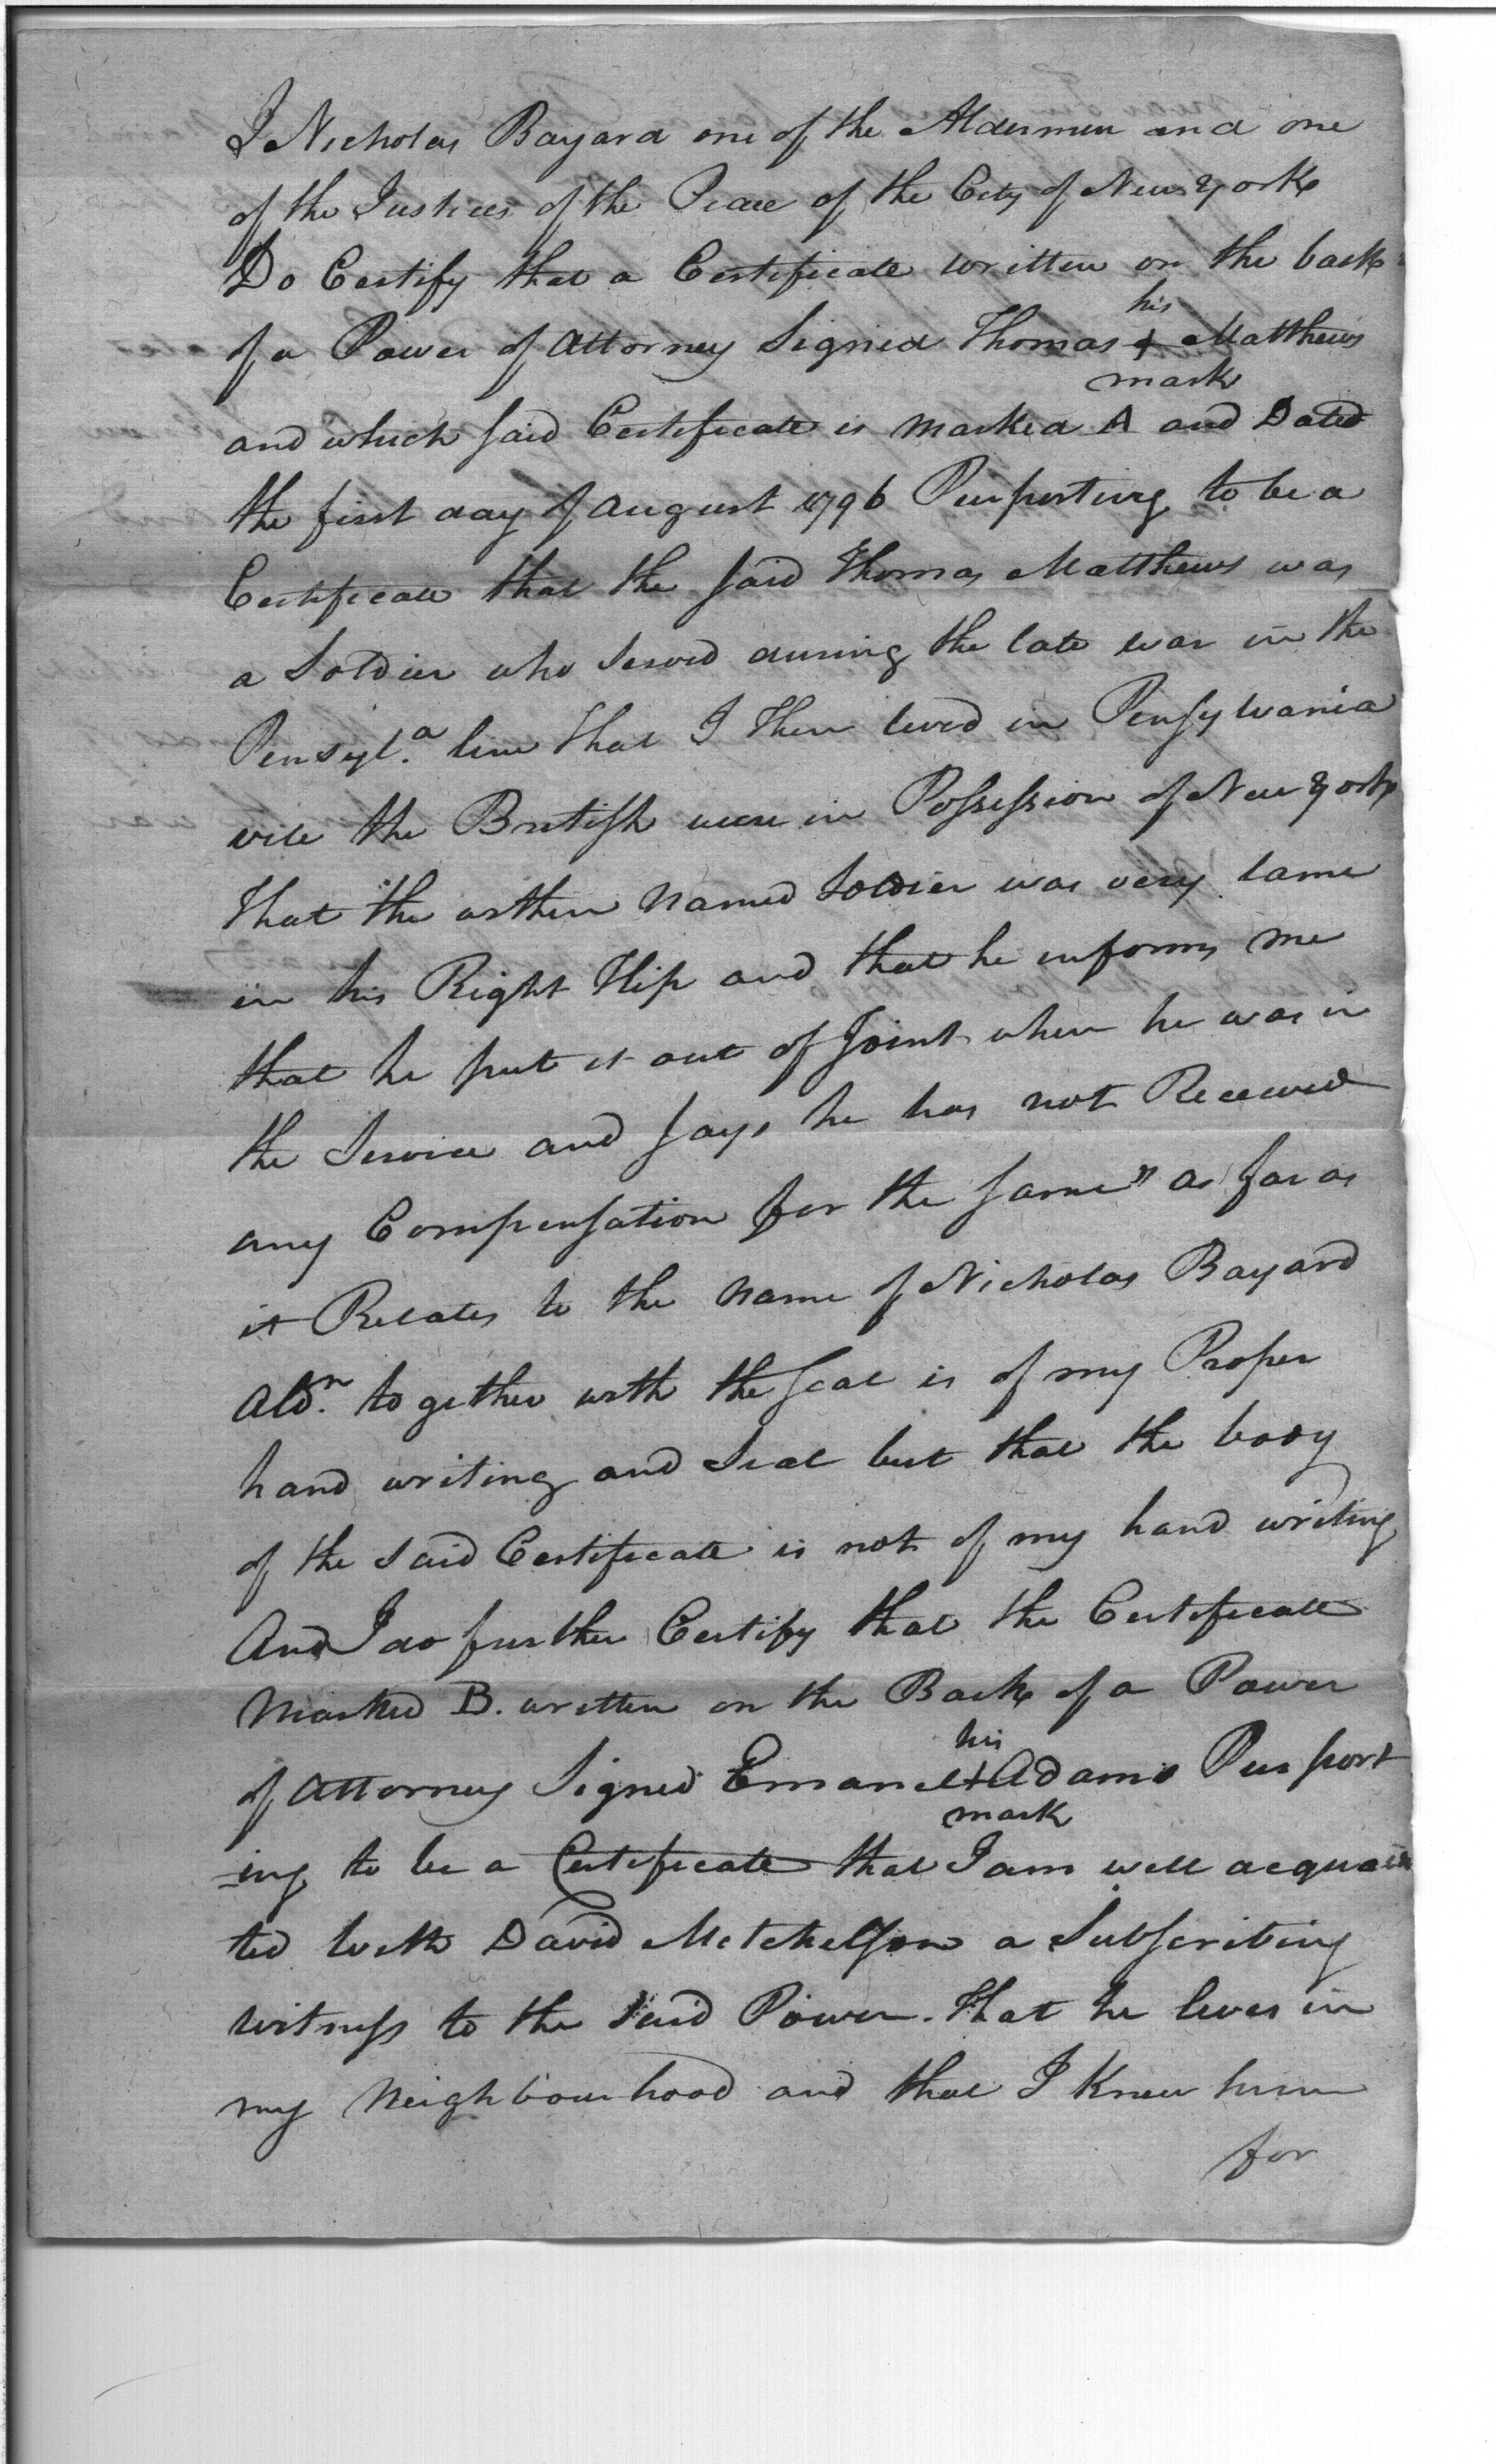 I Nicholas Bayard one of the Aldermen and one
of the Justices of the Peace of the City of New York
Do Certify that a Certificate written on the back
his
of a Power of Attorney Signed Thomas + Matthews
mark
and which said Certificate is marked A and Dated
the first day of August 1796 Purporting to be a
Certificate that the said Thomas Matthews was
a Soldier who served during the late war in the
Pensyl.a line that I then lived in Pensylvania
wile the British were in Possession of New York
that the within named Soldier was very lame
in his Right Hip and that he informs me
that he put it out of Joint when he was in
the Service and says he has not Received
any Compensation for the same" as far as
it Relates to the name of Nicholas Bayard
Ald.n together with the seal is of my Proper
hand writing and Seal but that the body
of the said Certificate is not of my hand writing
And I do further Certify that the Certificate
Marked B. written on the Back of a Power
his
of Attorney Signed Emanel + Adams Purport
mark
-ing to be a Certificate that I am well acquain
ted with David Mitchelson a Subscribing
witness to the said Power. that he lives in
my Neighbourhood and that I Knew him
for